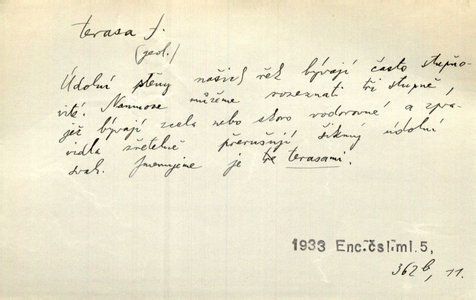 terasa f.
(geol.)
Údolní stěny našich řek bývají často stupňo-
vité. Namnoze můžeme rozeznati tři stupně,
jež bývají zcela nebo skoro vodorovné a zpra-
vidla zřetelně přerušují šikmý údolní
svah. Jmenujeme je terasami.
1933 Enc.čsl.ml.5,
362b, 11.